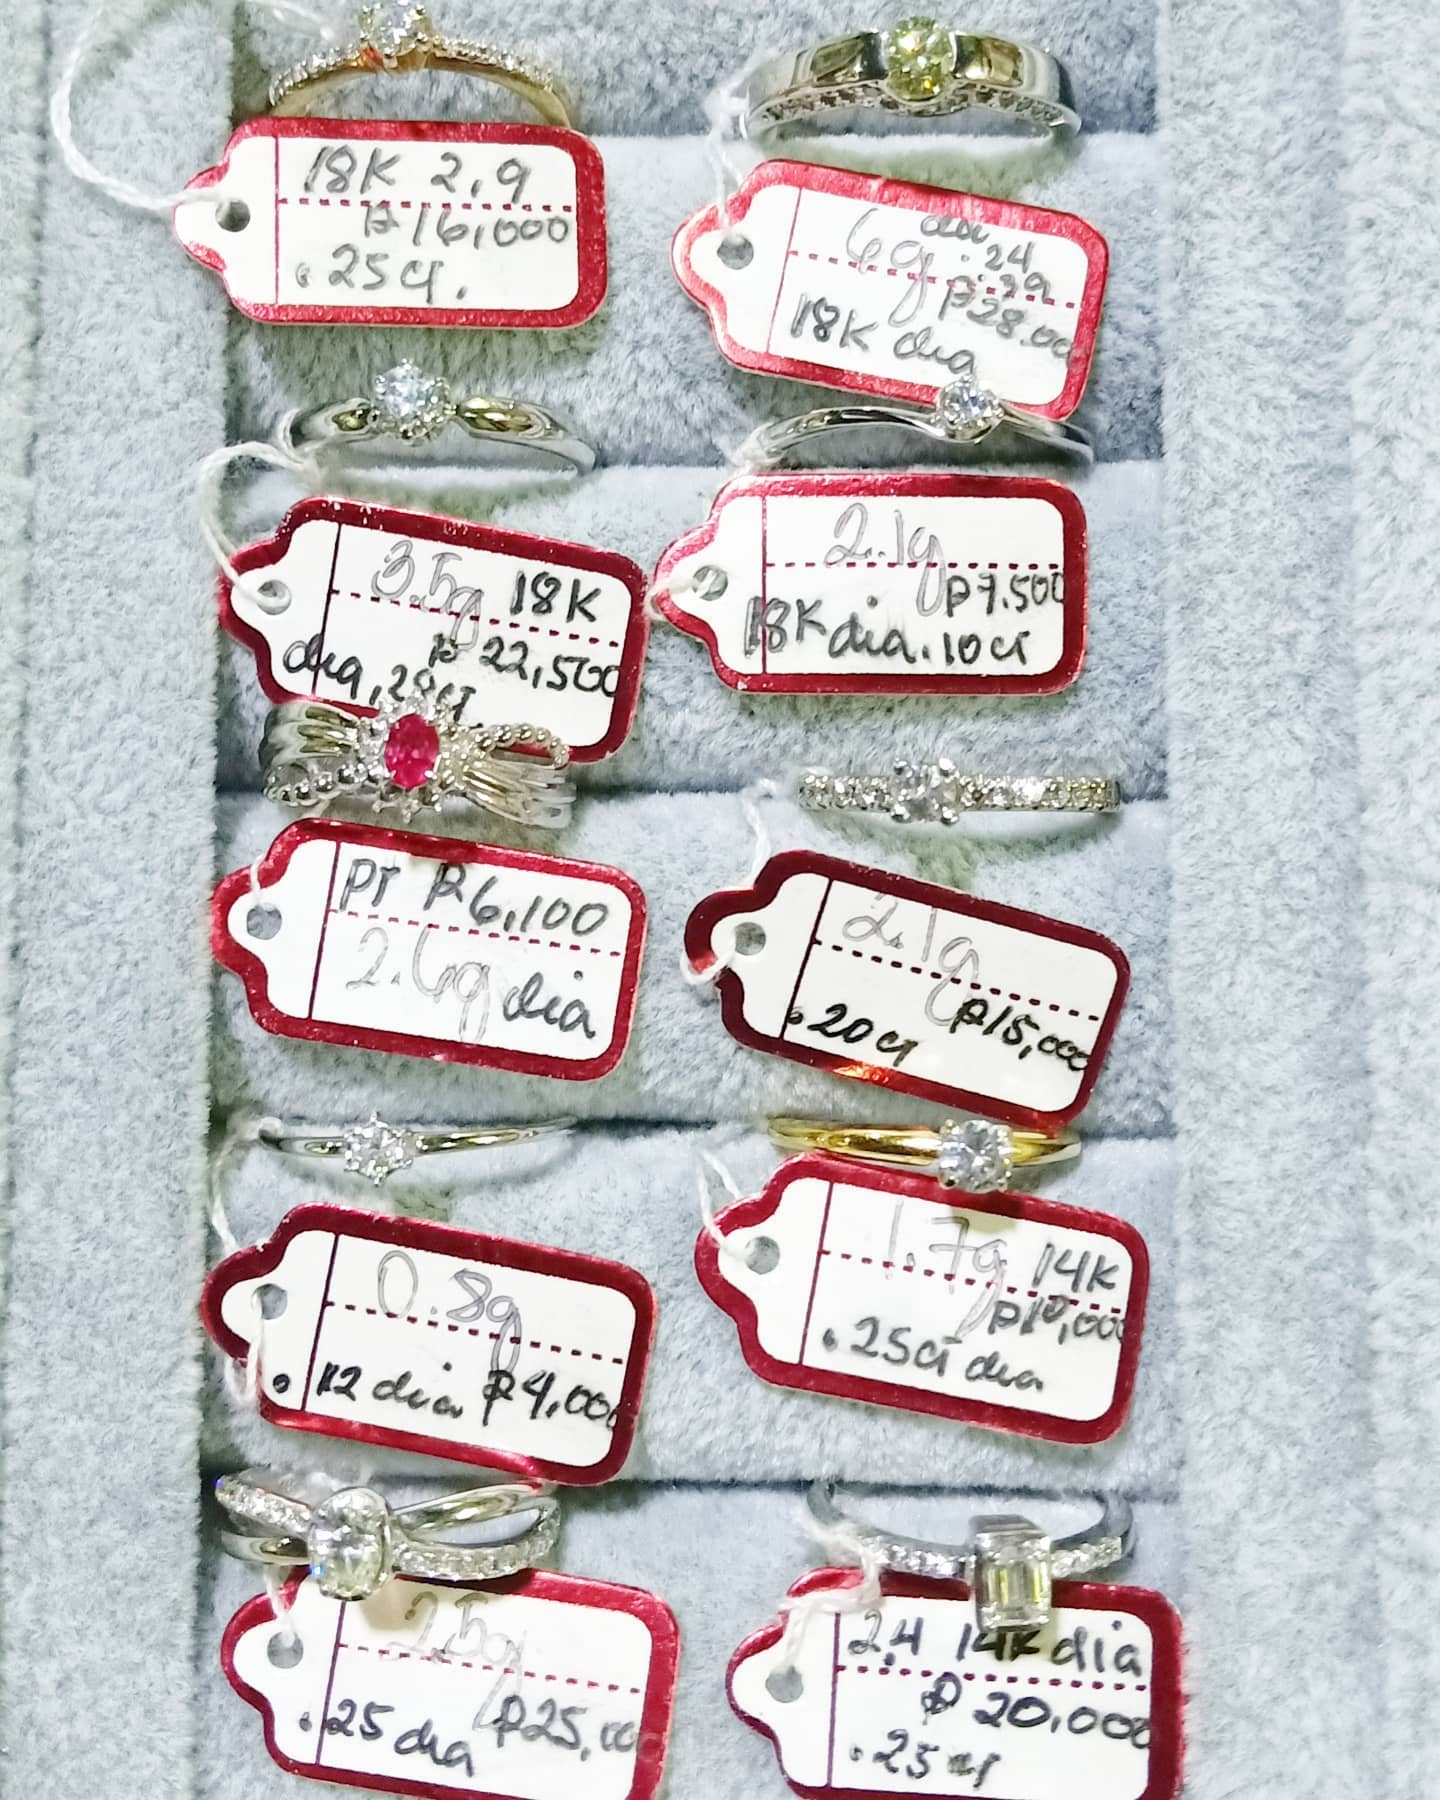 18K 2.9
₱16,000
.25ct.
dia .24
6g
₱28.00
18K dia
3.5g 18K
₱22,500
dia
2.1g
₱7.500
18K dia .10ct
PT ₱6,100
2.6g dia
2.1g
₱15,000
.20ct
0.8g
.12 dia ₱4,000
1.7g 14K
.25ct dia
2.5g
.25 dia ₱25,00
2.4 14K dia
₱20.000
.25ct